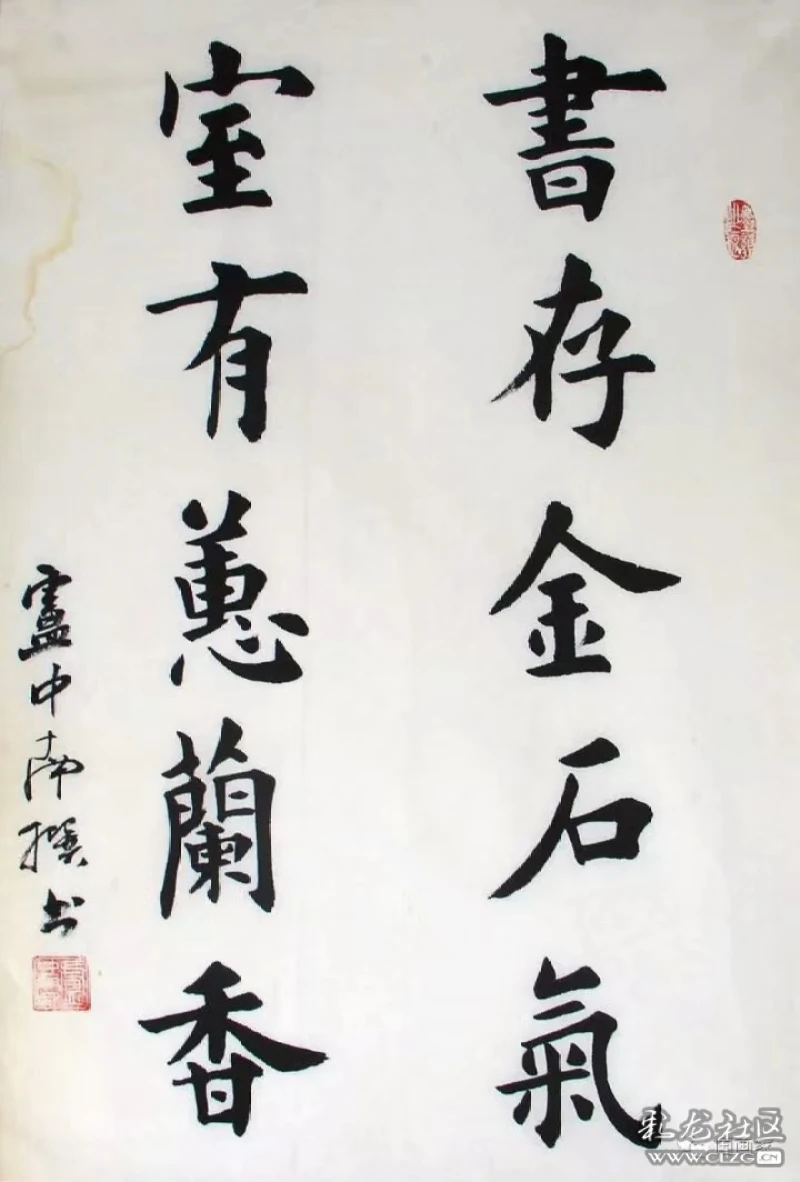 書存金石氣
室有蕙蘭香
盧中南撰书
彩龙社区
WWW.CLZG.CN